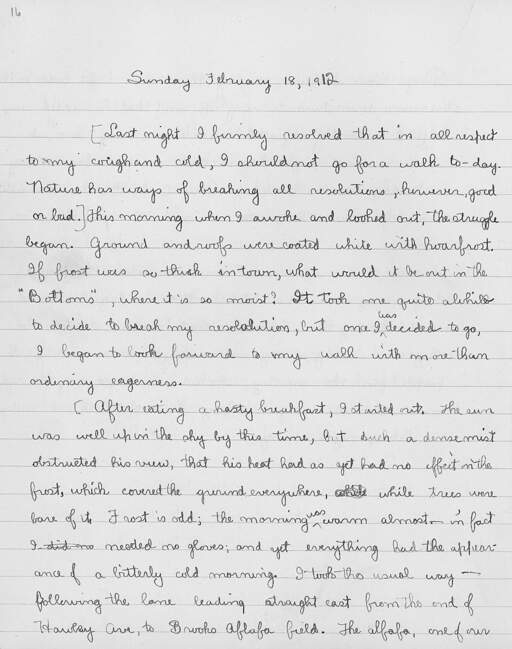 16
Sunday February 18, 1912
[Last night I firmly resolved that in all respect
to my cough and cold, I should not go for a walk to-day.
Nature has ways of breaking all resolutions, however, good
or bad.] This morning when I awoke and looked out, the struggle
began. Ground and roofs were coated white with hoarfrost.
If frost was so thick in town, what would it be out in the
"Bottoms", where it is so moist? It took me quite awhile
to decide to break my resolution, but once I had decided to go,
I began to look forward to my walk with more than
ordinary eagerness.
[ After eating a hasty breakfast, I started out. The sun
was well up in the sky by this time, but such a dense mist
obstructed his view, that his heat had as yet had no effect on the
frost, which covered the ground everywhere, while trees were
bare of it. Frost is odd; the morning was warm almost – in fact
I did no needed no gloves; and yet everything had the appear-
ance of a bitterly cold morning. I took the usual way —
following the lane leading straight east from the end of
Hawley Ave, to Brooks Alfafa field. The alfafa, one of our